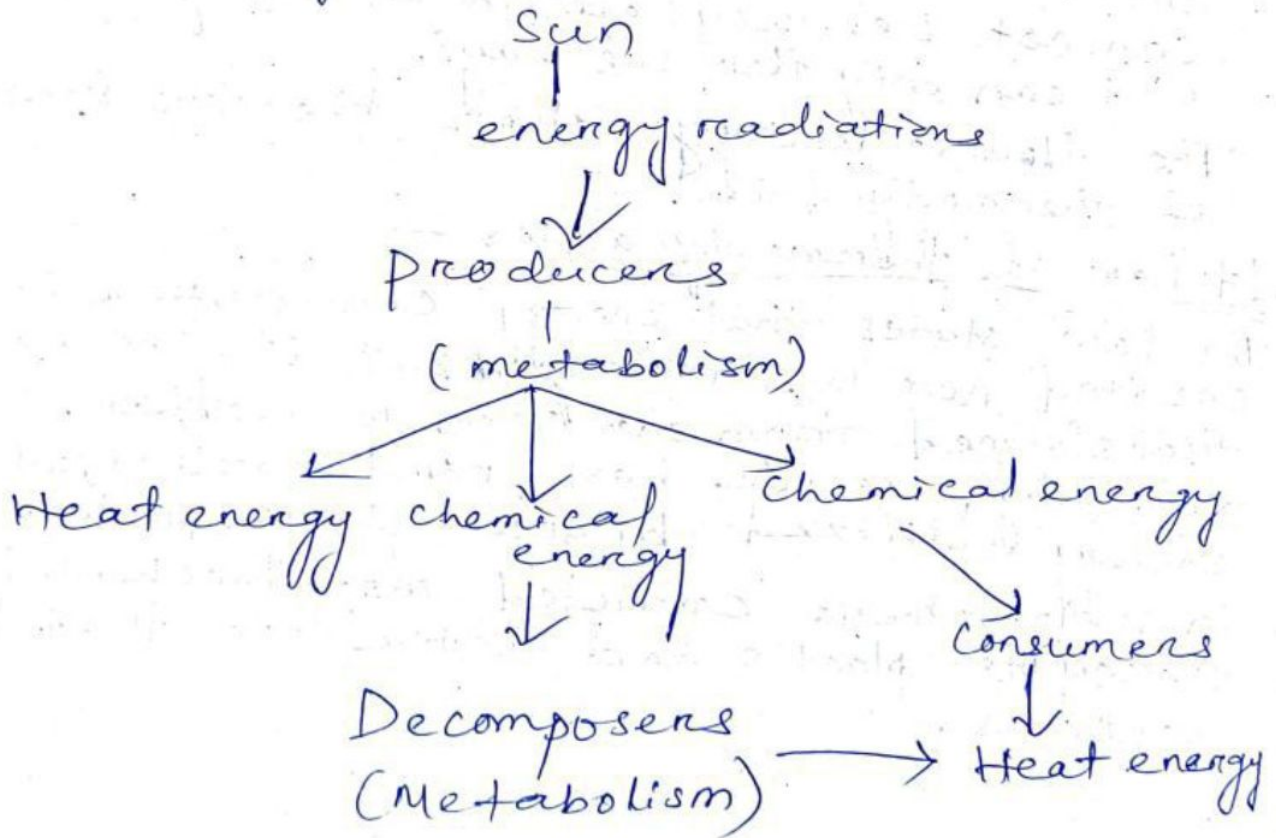 Sun
energy radiations
producers
(metabolism)
Heat energy chemical energy chemical energy
Consumers
Decomposers
(Metabolism)
Heat energy